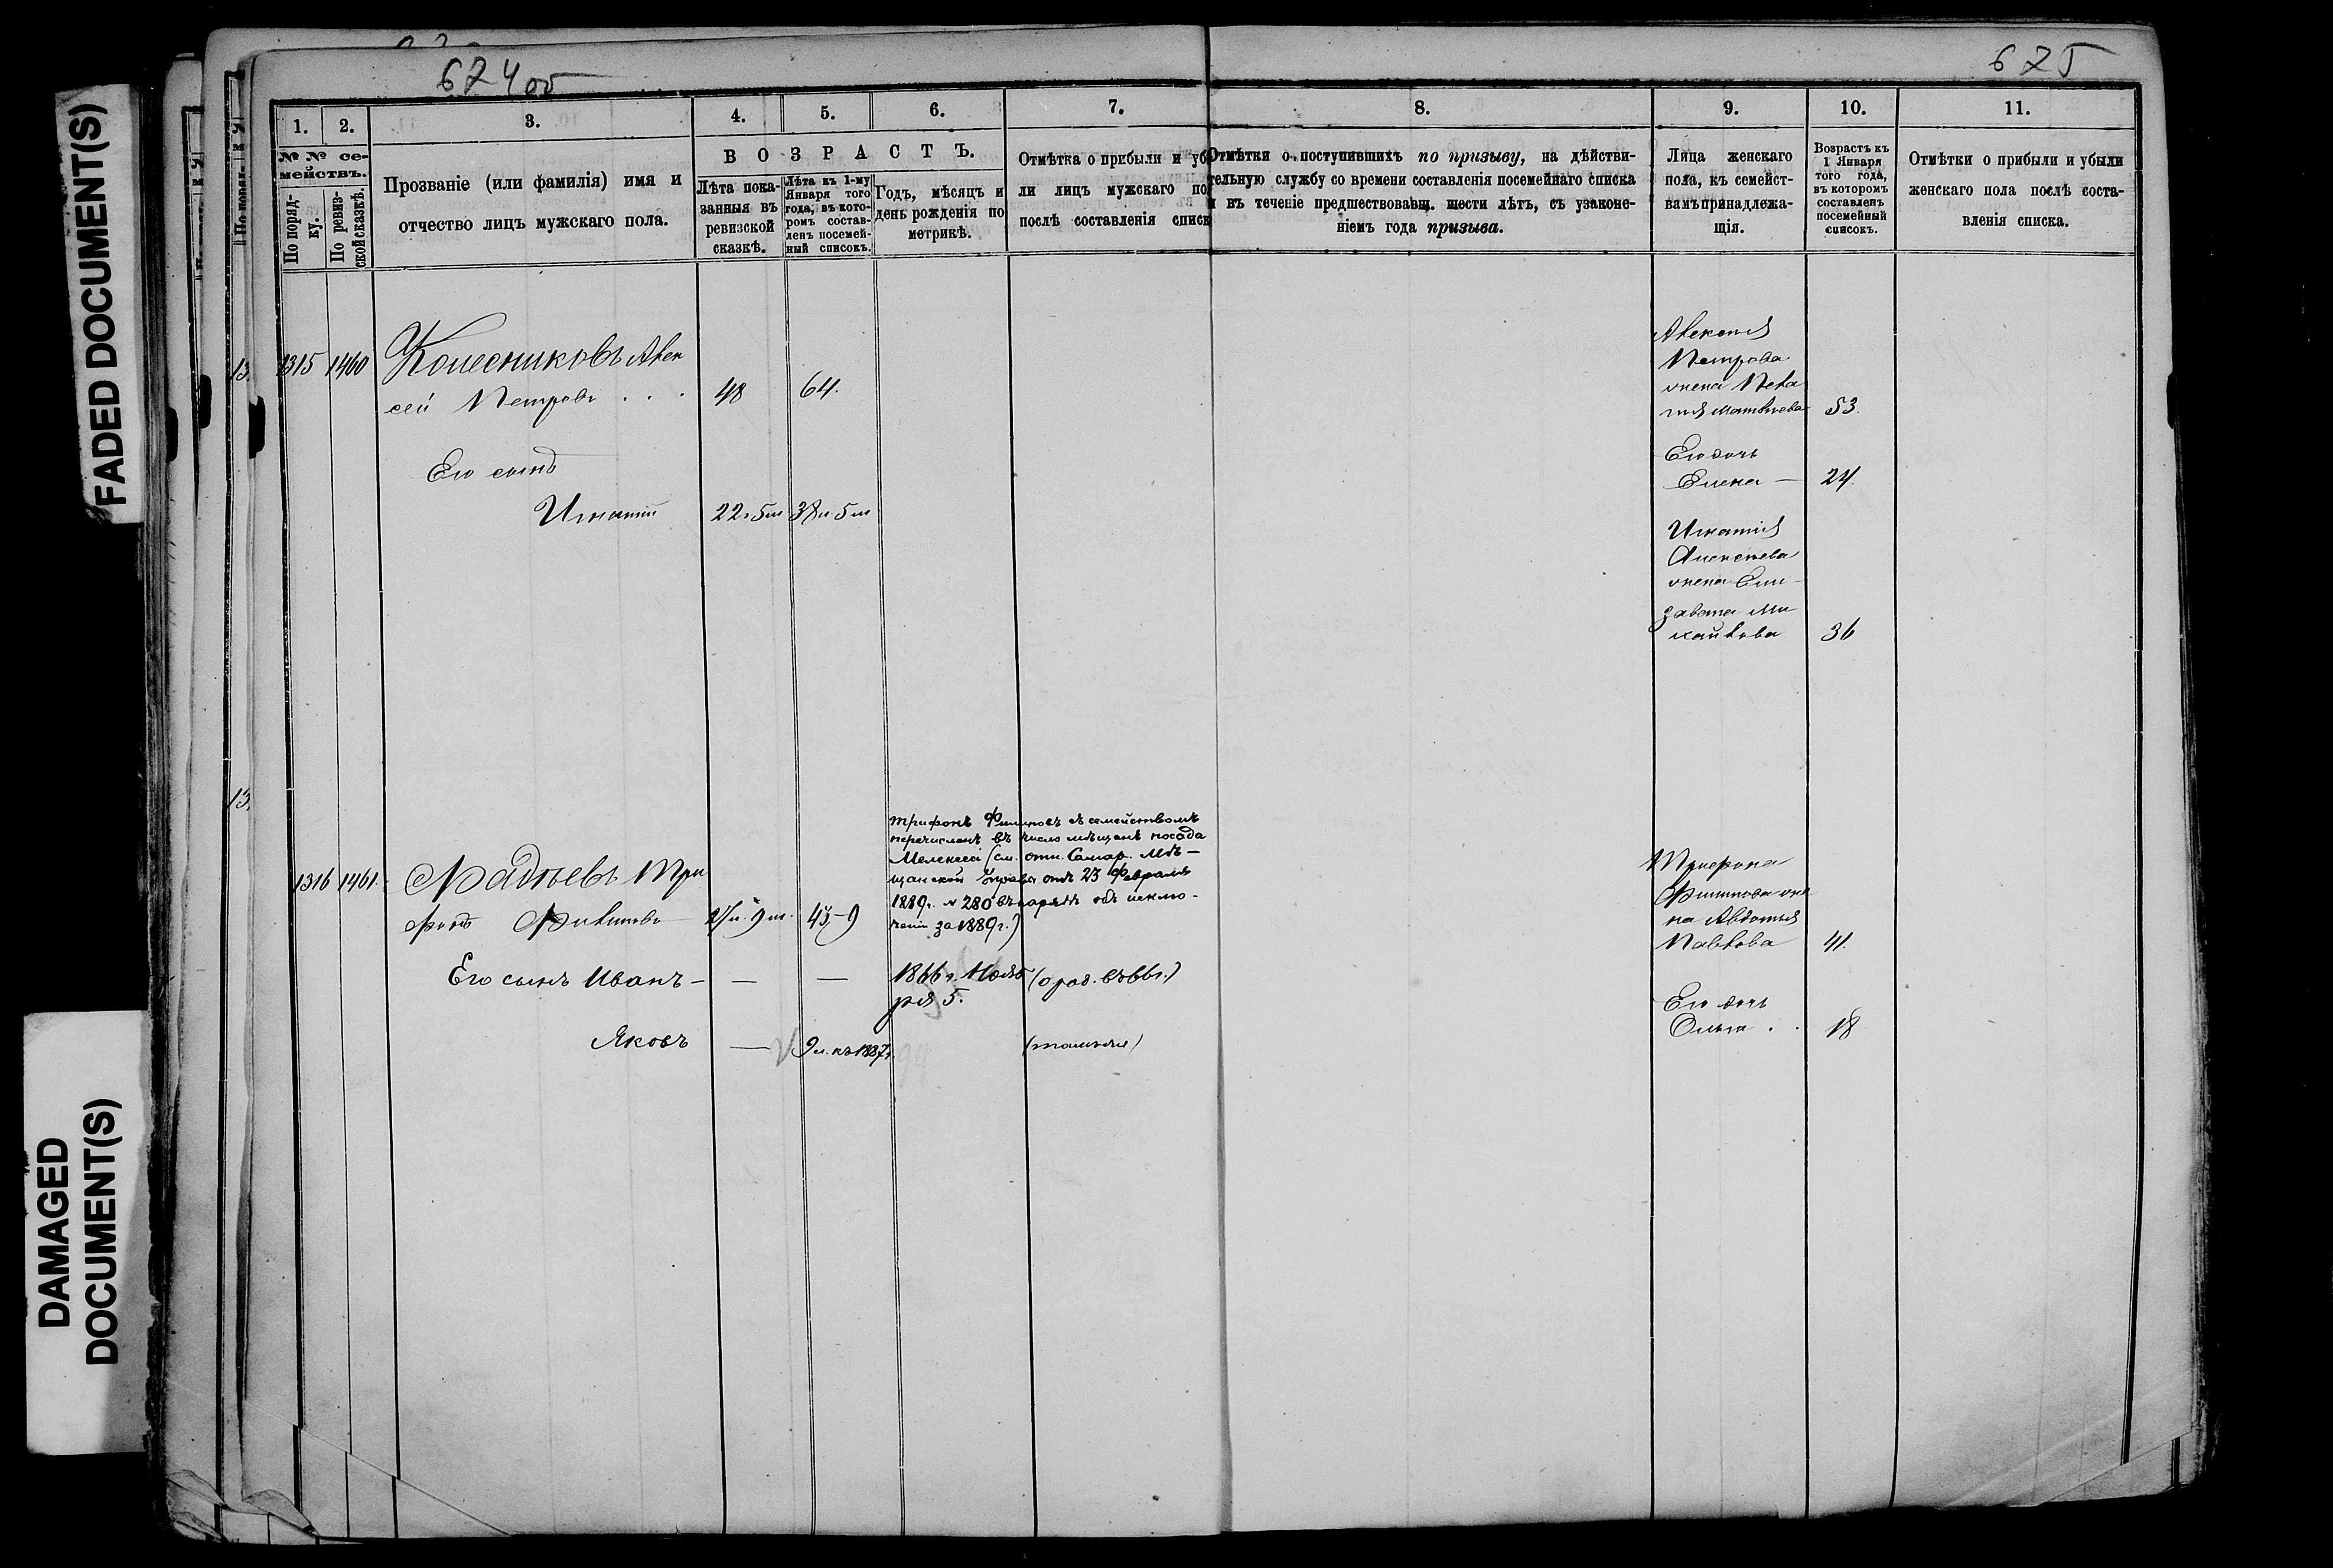 FADED DOCUMENT(S)
DAMAGED
DOCUMENT(S)
624об
675
1.
2.
3.
4.
5.
6.
7.
8.
9.
10.
11.
№ № се-
мействъ.
По поряд-
ку.
По ревиз-
ской сказкѣ.
Прозваніе (или фамилія) имя и
отчество лицъ мужскаго пола.
В О З Р А С Т Ъ.
Лѣта пока-
занныя въ
ревизской
сказкѣ.
Лѣта къ 1-му
Января того
года, въ кото-
ромъ состав-
ленъ посемей-
ный списокъ.
Годъ, мѣсяцъ и
день рожденія по
метрикѣ.
Отмѣтка о прибыли и уб
ли лицъ мужскаго по
послѣ составленія списк
Отмѣтки о поступившихъ по призыву, на дѣйстви-
тельную службу со времени составленія посемейнаго списка
и въ теченіе предшествовавш. шести лѣтъ, съ узаконе-
ніемъ года призыва.
Лица женскаго
пола, къ семейст-
вамъ принадлежа-
щія.
Возрастъ къ
1 Января
того года,
въ которомъ
составленъ
посемейный
списокъ.
Отмѣтки о прибыли и убыли
женскаго пола послѣ соста-
вленія списка.
1315 1460 Колесниковъ Алек
сей Петровъ . . . 48 64.
Его сынъ
Игнатій 22 г 5 м 38 л 5 м
Алексѣя
Петрова
жена Пела
гия Матвѣева 53.
Его дочь
Елена — 24.
Игнатія
Алексѣева
жена Ели-
завета Ми
хайлова 36
1316 1461. Фадѣевъ Три
фонъ Филиповъ 27 л. 9 м. 43-9
Трифонъ Филиповъ съ семействомъ
перечисленъ въ число мѣщанъ посада
Мелекеса (см. отн. Самар. Мѣ-
щанской управы отъ 23 Февраля
1889 г. № 280 въ нарядѣ объ исклю-
ченіи за 1889 г.)
Его сынъ Иванъ — — — 1866 г. Нояб
ря 5. (о род. въ 66 г.)
Яковъ — 9 л. къ 1887 г.
Трифона
Филипова же
на Авдотья
Павлова 41.
Его дочь
Ольга . . 18